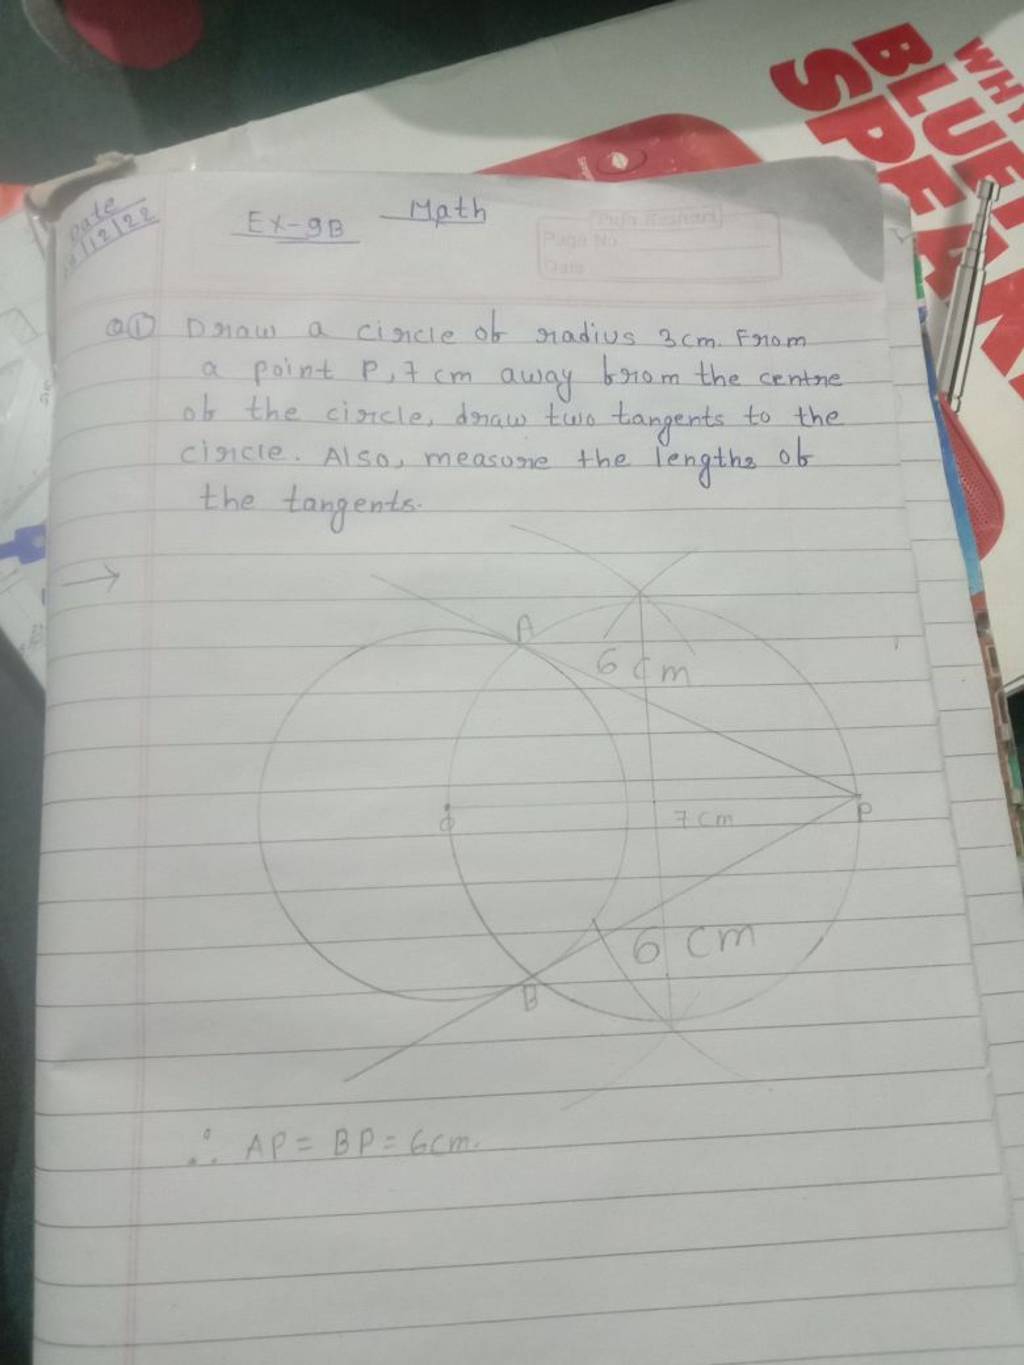 Date
12/22
Ex-9B
Math
Page No
Date
WHY
BLUE
SPEAK
Q① Draw a circle of radius 3cm. From
a point P, 7 cm away from the centre
of the circle, draw two tangents to the
circle. Also, measure the lengths of
the tangents.
→
A
6 cm
O
7 cm
P
6 cm
B
∴ AP = BP = 6cm.